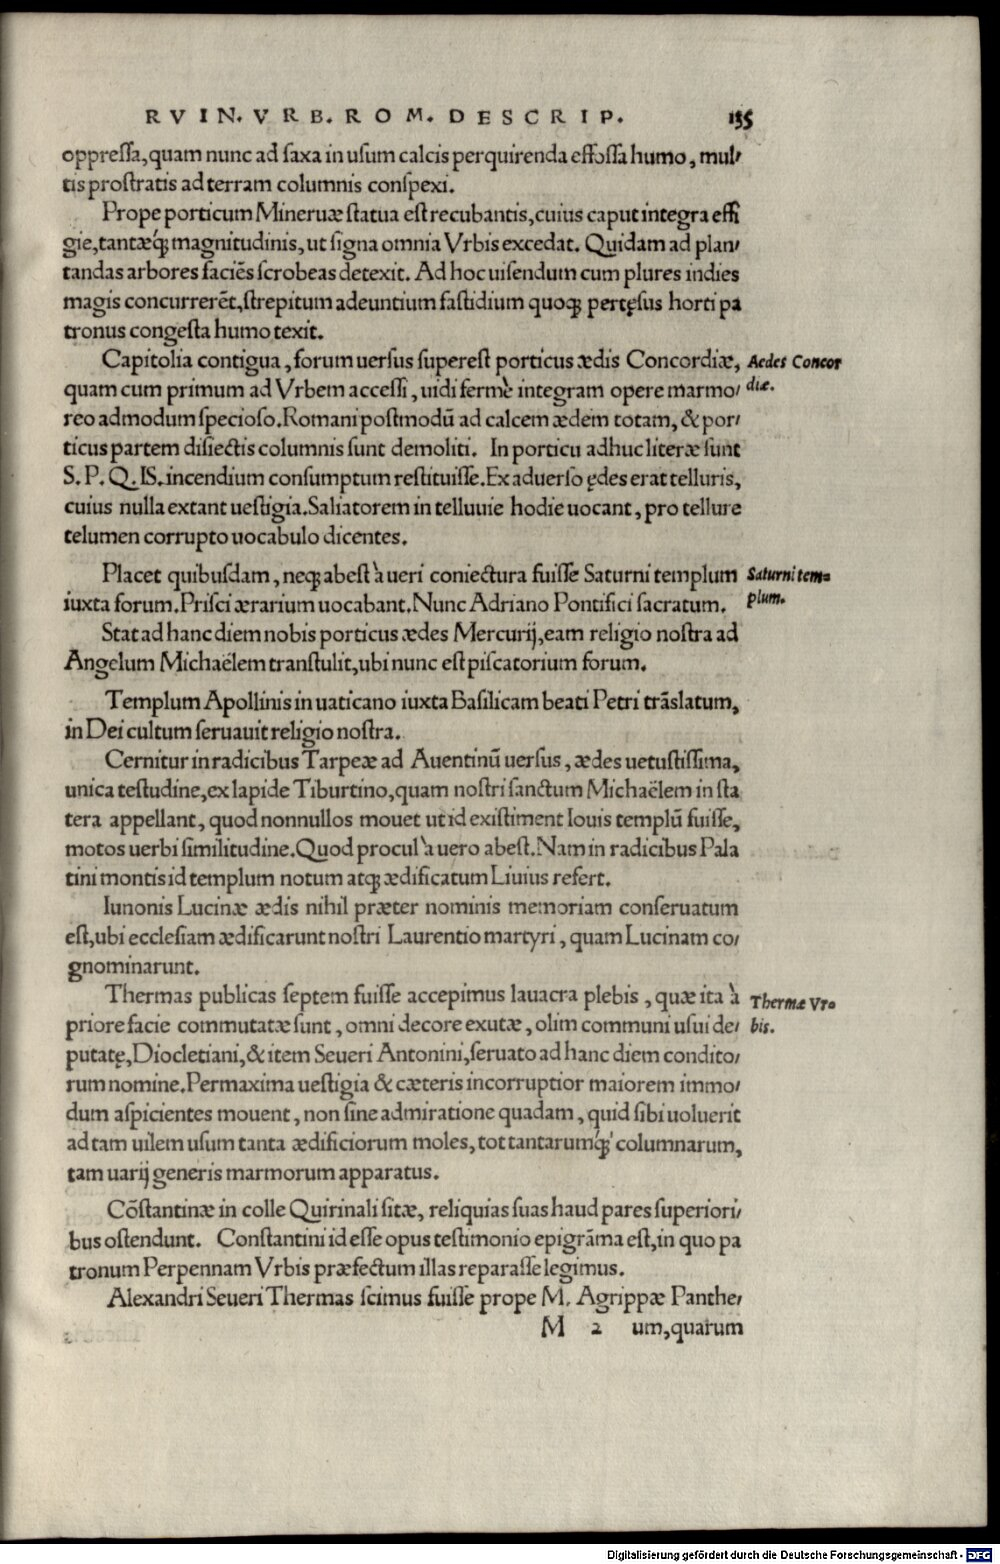 RVIN. VRB. ROM. DESCRIP. 135
oppreſſa, quam nunc ad ſaxa in uſum calcis perquirenda effoſſa humo, mul/
tis proſtratis ad terram columnis conſpexi.
Prope porticum Mineruæ ſtatua eſt recubantis, cuius caput integra effi
gie, tantæq́ꝫ magnitudinis, ut ſigna omnia Vrbis excedat. Quidam ad plan/
tandas arbores faciẽs ſcrobeas detexit. Ad hoc uiſendum cum plures indies
magis concurrerẽt, ſtrepitum adeuntium faſtidium quoqꝫ pertęſus horti pa
tronus congeſta humo texit.
Capitolia contigua, forum uerſus ſupereſt porticus ædis Concordiæ, Aedes Concor
quam cum primum ad Vrbem acceſſi, uidi fermè integram opere marmo/ diæ.
reo admodum ſpecioſo. Romani poſtmodũ ad calcem ædem totam, & por/
ticus partem diſiectis columnis ſunt demoliti. In porticu adhuc literæ ſunt
S. P. Q. IS. incendium conſumptum reſtituiſſe. Ex aduerſo ędes erat telluris,
cuius nulla extant ueſtigia. Saliatorem in telluuie hodie uocant, pro tellure
telumen corrupto uocabulo dicentes.
Placet quibuſdam, neqꝫ abeſt à ueri coniectura fuiſſe Saturni templum Saturni tem=
iuxta forum. Priſci ærarium uocabant. Nunc Adriano Pontifici ſacratum. plum.
Stat ad hanc diem nobis porticus ædes Mercurij, eam religio noſtra ad
Angelum Michaëlem tranſtulit, ubi nunc eſt piſcatorium forum.
Templum Apollinis in uaticano iuxta Baſilicam beati Petri trãslatum,
in Dei cultum ſeruauit religio noſtra.
Cernitur in radicibus Tarpeæ ad Auentinũ uerſus, ædes uetuſtiſſima,
unica teſtudine, ex lapide Tiburtino, quam noſtri ſanctum Michaëlem in ſta
tera appellant, quod nonnullos mouet ut id exiſtiment Iouis templũ fuiſſe,
motos uerbi ſimilitudine. Quod procul à uero abeſt. Nam in radicibus Pala
tini montis id templum notum atqꝫ ædificatum Liuius refert.
Iunonis Lucinæ ædis nihil præter nominis memoriam conſeruatum
eſt, ubi eccleſiam ædificarunt noſtri Laurentio martyri, quam Lucinam co/
gnominarunt.
Thermas publicas ſeptem fuiſſe accepimus lauacra plebis, quæ ita à Thermæ Vr=
priore facie commutatæ ſunt, omni decore exutæ, olim communi uſui de/ bis.
putatę, Diocletiani, & item Seueri Antonini, ſeruato ad hanc diem condito/
rum nomine. Permaxima ueſtigia & cæteris incorruptior maiorem immo/
dum aſpicientes mouent, non ſine admiratione quadam, quid ſibi uoluerit
ad tam uilem uſum tanta ædificiorum moles, tot tantarumq́ꝫ columnarum,
tam uarij generis marmorum apparatus.
Cõſtantinæ in colle Quirinali ſitæ, reliquias ſuas haud pares ſuperiori/
bus oſtendunt. Conſtantini id eſſe opus teſtimonio epigrãma eſt, in quo pa
tronum Perpennam Vrbis præfectum illas reparaſſe legimus.
Alexandri Seueri Thermas ſcimus fuiſſe prope M. Agrippæ Panthe/
M 2 um, quarum
Digitalisierung gefördert durch die Deutsche Forschungsgemeinschaft - DFG